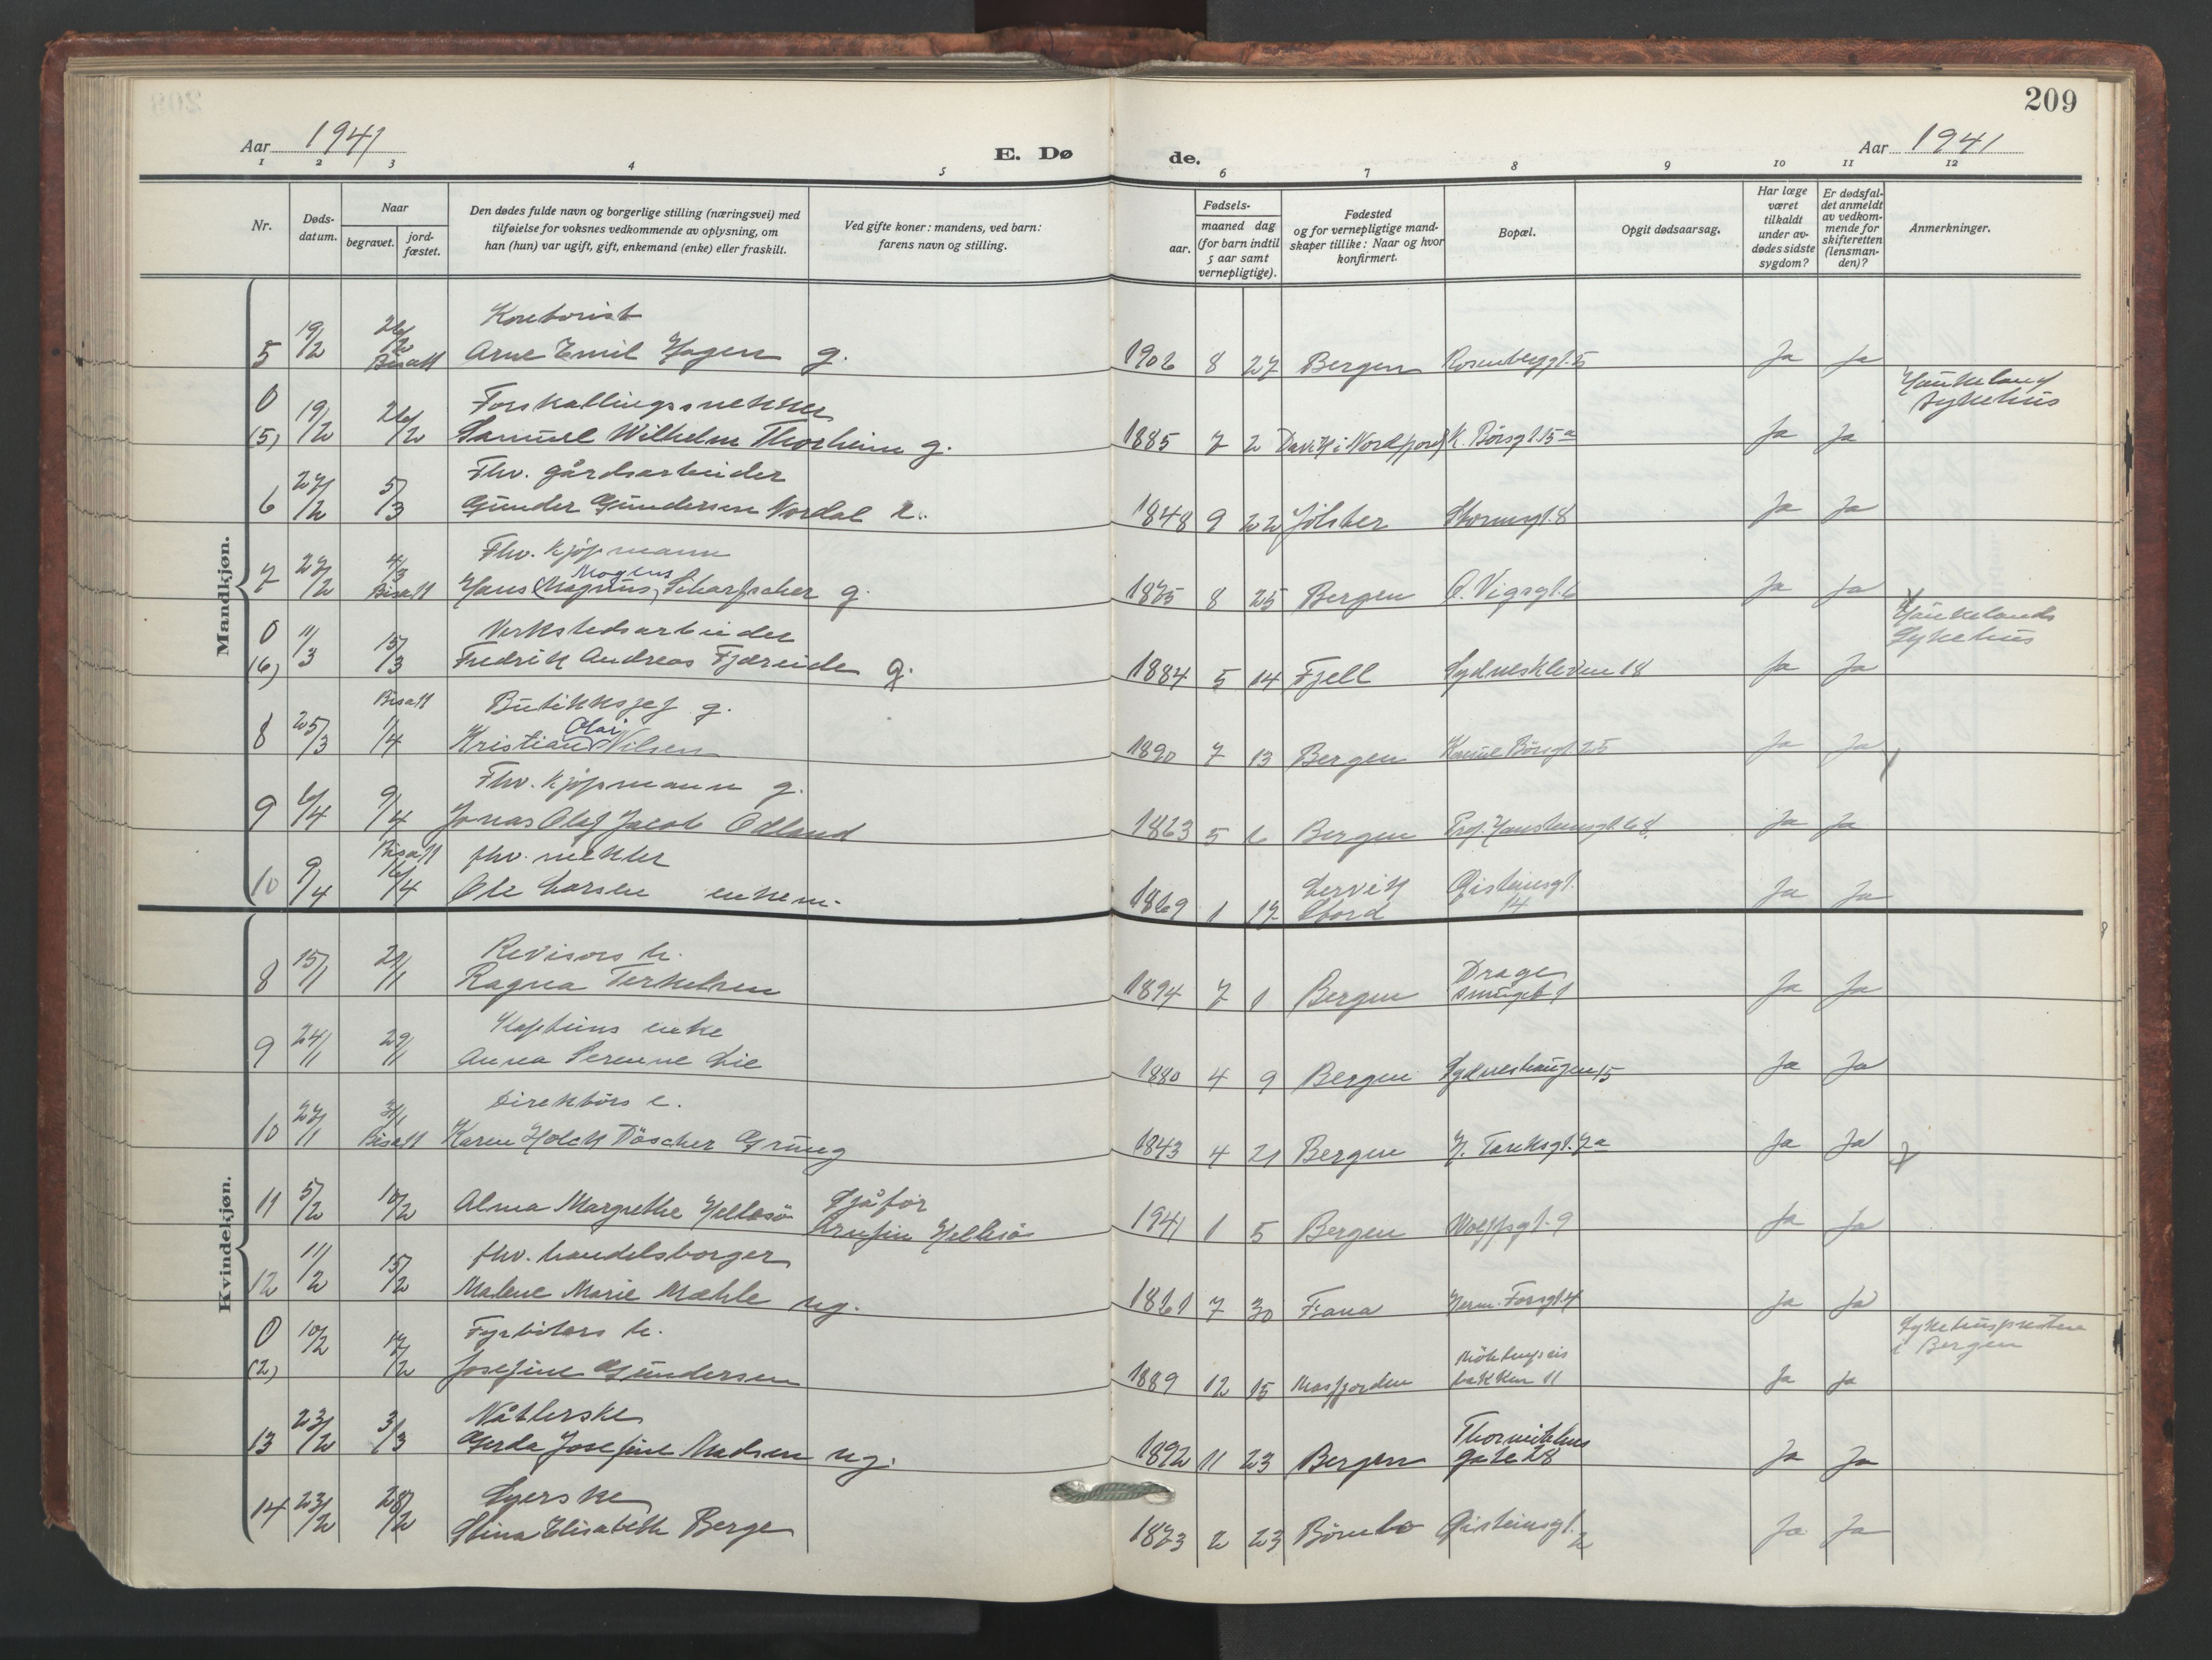 209
Aar 1941
E. Dø
de.
Aar 1941
1 2 3 4 5 6 7 8 9 10 11 12
Nr.
Døds-
datum.
Naar
begravet.
jord-
fæstet.
Den dødes fulde navn og borgerlige stilling (næringsvei) med
tilføielse for voksnes vedkommende av oplysning, om
han (hun) var ugift, gift, enkemand (enke) eller fraskilt.
Ved gifte koner: mandens, ved barn:
farens navn og stilling.
Fødsels-
aar.
maaned dag
(for barn indtil
5 aar samt
vernepligtige).
Fødested
og for vernepligtige mand-
skaper tillike: Naar og hvor
konfirmert.
Bopæl.
Opgit dødsaarsag.
Har læge
været
tilkaldt
under av-
dødes sidste
sygdom?
Er dødsfal-
det anmeldt
av vedkom-
mende for
skifteretten
(lensman-
den)?
Anmerkninger.
Mandkjøn.
Kontorist
5 19/2 26/2 Bisatt Arne Emil Hagen g. 1906 8 27 Bergen Rosenberggt. 5 Ja Ja
0 Forskallingssnekker Haukeland Sykehus
(5) 19/2 26/2 Samuel Wilhelm Thorheim g. 1885 7 2 Davik i Nordfjord K. Børsgt. 15a Ja Ja
Fhv. gårdsarbeider
6 27/2 5/3 Gunder Gundersen Nordal e. 1848 9 22 Jölster Stormgt. 8 Ja Ja
Fhv. Kjøpmann
Mogens
7 27/2 4/3 Bisatt Hans (Magnus) Scharffscher g. 1875 8 25 Bergen O. Vigsgt. 6 Ja Ja
0 Verkstedsarbeider Haukelands Sykehus
(6) 11/3 15/3 Fredrik Andreas Fjæreide g. 1884 5 14 Fjell Sydneskleven 18 Ja Ja
Bisatt Butikksjef g.
Olai
8 25/3 1/4 Kristian Nilsen 1890 7 13 Bergen Konsul Börsgt 25 Ja Ja
Fhv. Kjøpmann g.
9 6/4 9/4 Jonas Olaf Jacob Odland 1863 5 6 Bergen Prof. Hansteensgt. 68 Ja Ja
Bisatt fhv. mekler
10 9/4 16/4 Ole Larsen enkem. 1869 1 17 Lervik Stord Øisteinsgt. 14 Ja Ja
Kvindekjøn.
Revisors h.
8 15/1 21/1 Ragna Terkelsen 1894 7 1 Bergen Dragesmuget 1 Ja Ja
Kapteins enke
9 24/1 29/1 Anna Perenne Lie 1880 4 9 Bergen Sydneshaugen 15 Ja Ja
Direktörs e.
10 27/1 31/1 Bisatt Karen Holck Döscher Grung 1843 4 21 Bergen H. Tanksgt. 7a Ja Ja
Sjåför
11 5/2 10/2 Alma Margrethe Hellesö Hellesö 1941 1 5 Bergen Wolffsgt. 9 Ja Ja
fhv. handelsborger
12 11/2 15/2 Malene Marie Mæhle ug. 1861 7 30 Fana Herm. Fossgt 4 Ja Ja
0 Fyrbøters h. Sykehuspresten i Bergen
(2) 10/2 17/2 Josefine Gundersen 1889 12 15 Masfjorden Möhlenpris bakken 11 Ja Ja
Nåtlerske
13 23/2 3/3 Gerda Josefine Madsen ug. 1892 11 23 Bergen gate 28 Ja Ja
Syerske
14 23/2 28/2 Stina Elisabeth Berge 1873 2 23 Bømlo Øisteinsgt. 2 Ja Ja